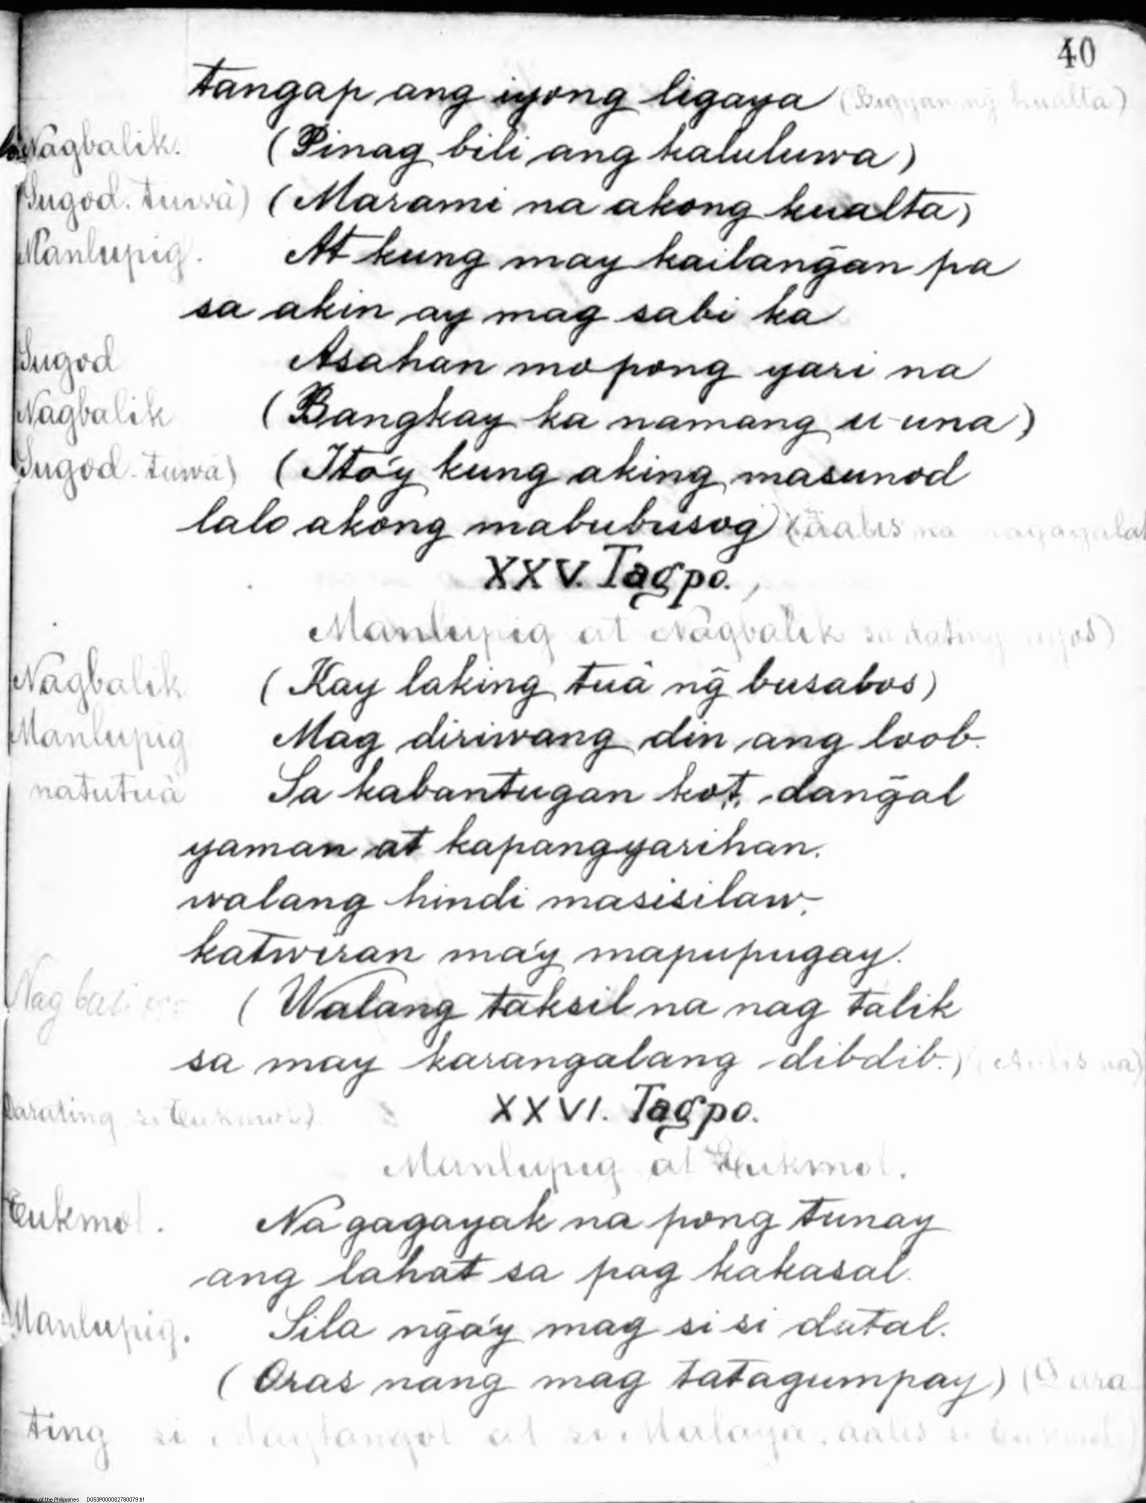 40
tangap ang iyong ligaya (Bigyan ng̃ kualta)
Nagbalik. (Pinag bili ang kaluluwa)
Sugod. tuwâ) (Marami na akong kualta)
Manlupig. At kung may kailang̃an pa
sa akin ay mag sabi ka
Sugod Asahan mo pong yari na
Nagbalik (Bangkay ka namang u-una)
Sugod. tuwâ) (Ito'y kung aking masunod
lalo akong mabubusog) (Aalis na nagagalak
XXV. Tagpo.
Manlupig at Nagbalik sa dating ayos)
Nagbalik (Kay laking tuâ ng̃ busabos)
Manlupig Mag diriwang din ang loob.
natutuâ Sa kabantugan ko't, dang̃al
yaman at kapangyarihan.
walang hindi masisilaw,
katwiran ma'y mapupugay.
Nagbali (Walang taksil na nag talik
sa may karangalang dibdib.) (Aalis na)
Darating si Cukmol) XXVI. Tagpo.
Manlupig at Cukmol.
Cukmol. Na gagayak na pong tunay
ang lahat sa pag kakasal.
Manlupig. Sila ng̃a'y mag si si datal.
(Oras nang mag tatagumpay) (Dara
ting si Magtangol at si Malaya. aalis si Cukmol)